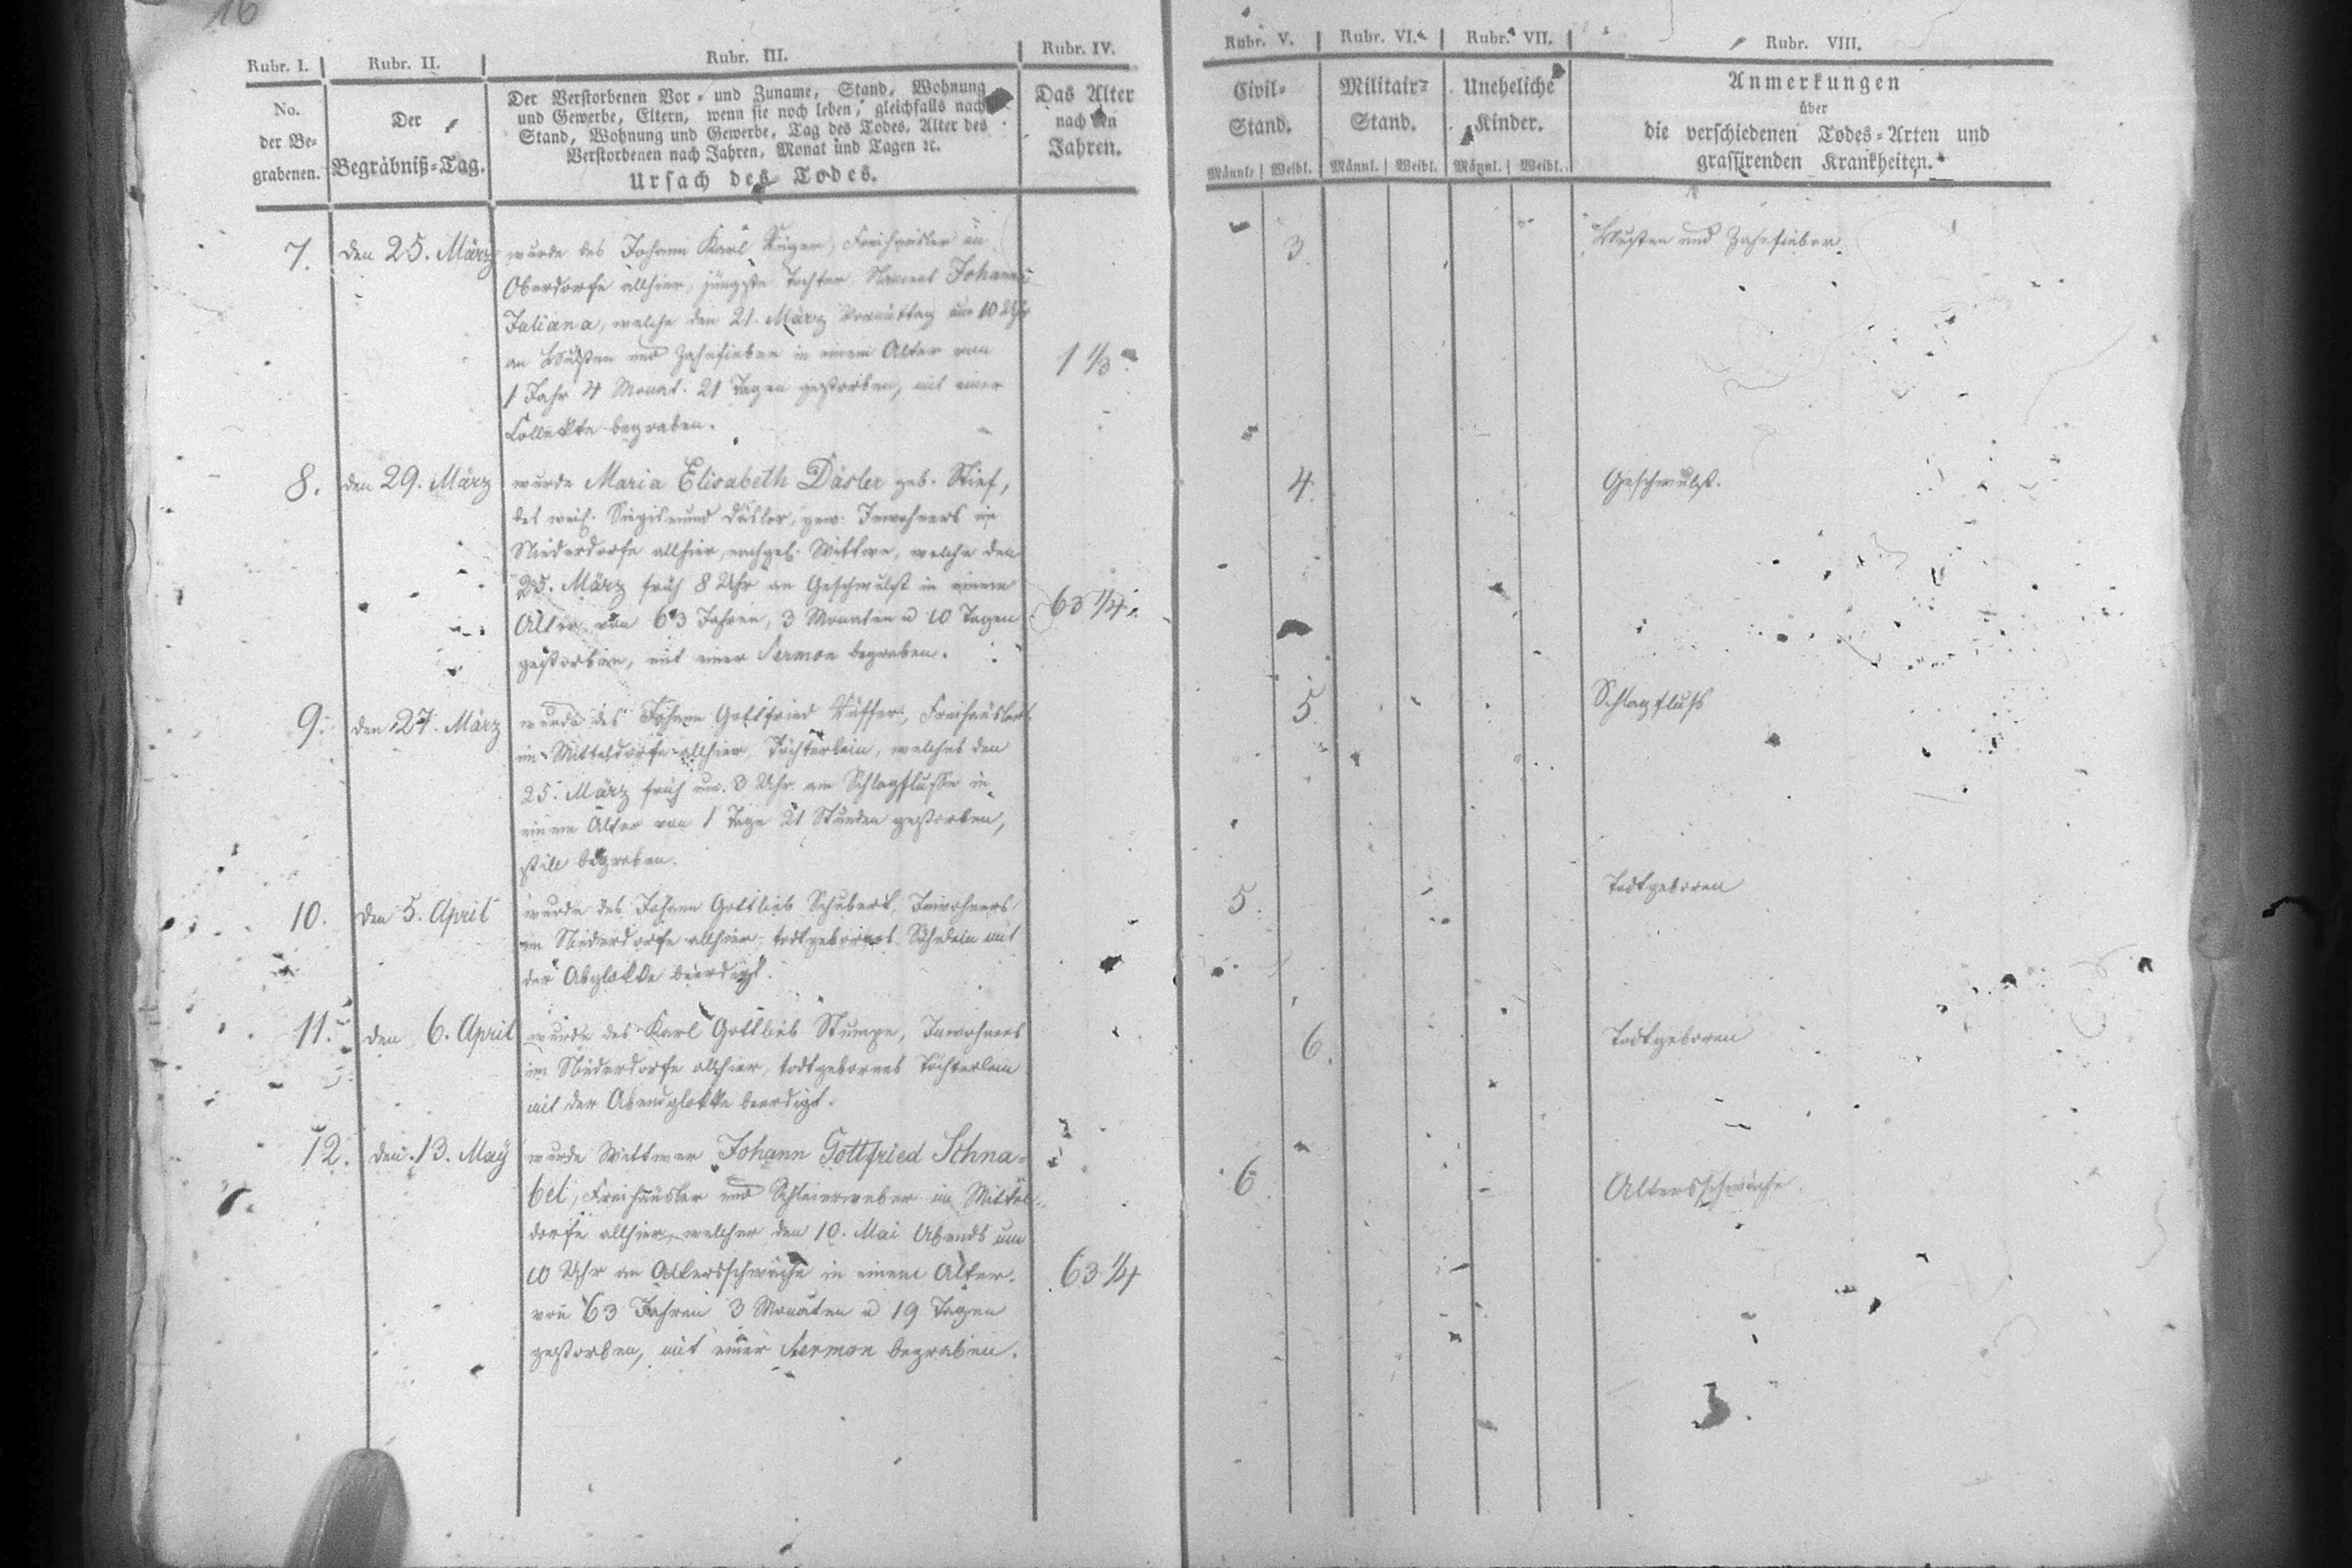 16
Rubr. I. Rubr. II. Rubr. III. Rubr. IV. Rubr. V. Rubr. VI. Rubr. VII. Rubr. VIII.
No. der Be- grabenen.
Der Begräbniß-Tag.
Der Verstorbenen Vor- und Zuname, Stand, Wohnung
und Gewerbe, Eltern, wenn sie noch leben, gleichfalls nach
Stand, Wohnung und Gewerbe, Tag des Todes, Alter des
Verstorbenen nach Jahren, Monat und Tagen ꝛc.
Ursach des Todes.
Das Alter
nach den
Jahren.
Civil-
Stand.
Männl. Weibl.
Militair-
Stand.
Männl. Weibl.
Uneheliche
Kinder.
Männl. Weibl.
Anmerkungen
über
die verschiedenen Todes-Arten und
grassirenden Krankheiten.
7. den 25. März wurde des Johann Karl Freihäusler im 3. Husten und Zahnfieber
Oberdorfe allhier, jüngste Tochter Namens Johanne
Juliana, welche den 21. März Vormittag um 10 Uhr
an Husten und Zahnfieber in einem Alter von 1 1/3
1 Jahr 4 Monat 21 Tagen gestorben, mit einer
Collekte begraben.
8. den 29. März wurde Maria Elisabeth Däsler geb. Stief, 4. Geschwulst.
des weil. Siegismund Däsler, gew. Inwohners im
Niederdorfe allhier, nachgel. Wittwe, welche den
25. März früh 8 Uhr an Geschwulst in einem
Alter von 63 Jahren, 3 Monaten u 10 Tagen 63 1/4.
gestorben, mit einer Sermon begraben.
9. den 27. März wurde des Johann Gottfried Freihäuslers 5 Schlagfluß
im Mitteldorfe allhier, Töchterlein, welches den
25. März früh um 3 Uhr am Schlagflusse in
einem Alter von 1 Tage 21 Stunden gestorben,
still begraben.
10. den 5. April wurde des Johann Gottlieb Schubert, Inwohners 5. Todtgeboren
im Niederdorfe allhier, todtgebornes Söhnlein mit
der Abglokke beerdigt.
11. den 6. April wurde des Karl Gottlieb Stumpe, Inwohners 6. Todtgeboren
im Niederdorfe allhier, todtgebornes Töchterlein
mit der Abendglokke beerdigt.
12. den 13. May wurde Wittwer Johann Gottfried Schna- 6 Altersschwäche.
bel, Freihäusler und Schleierweber im Mittel-
dorfe allhier, welcher den 10. Mai Abends um
10 Uhr an Altersschwäche in einem Alter 63 1/4
von 63 Jahren 3 Monaten u 19 Tagen
gestorben, mit einer Sermon begraben.